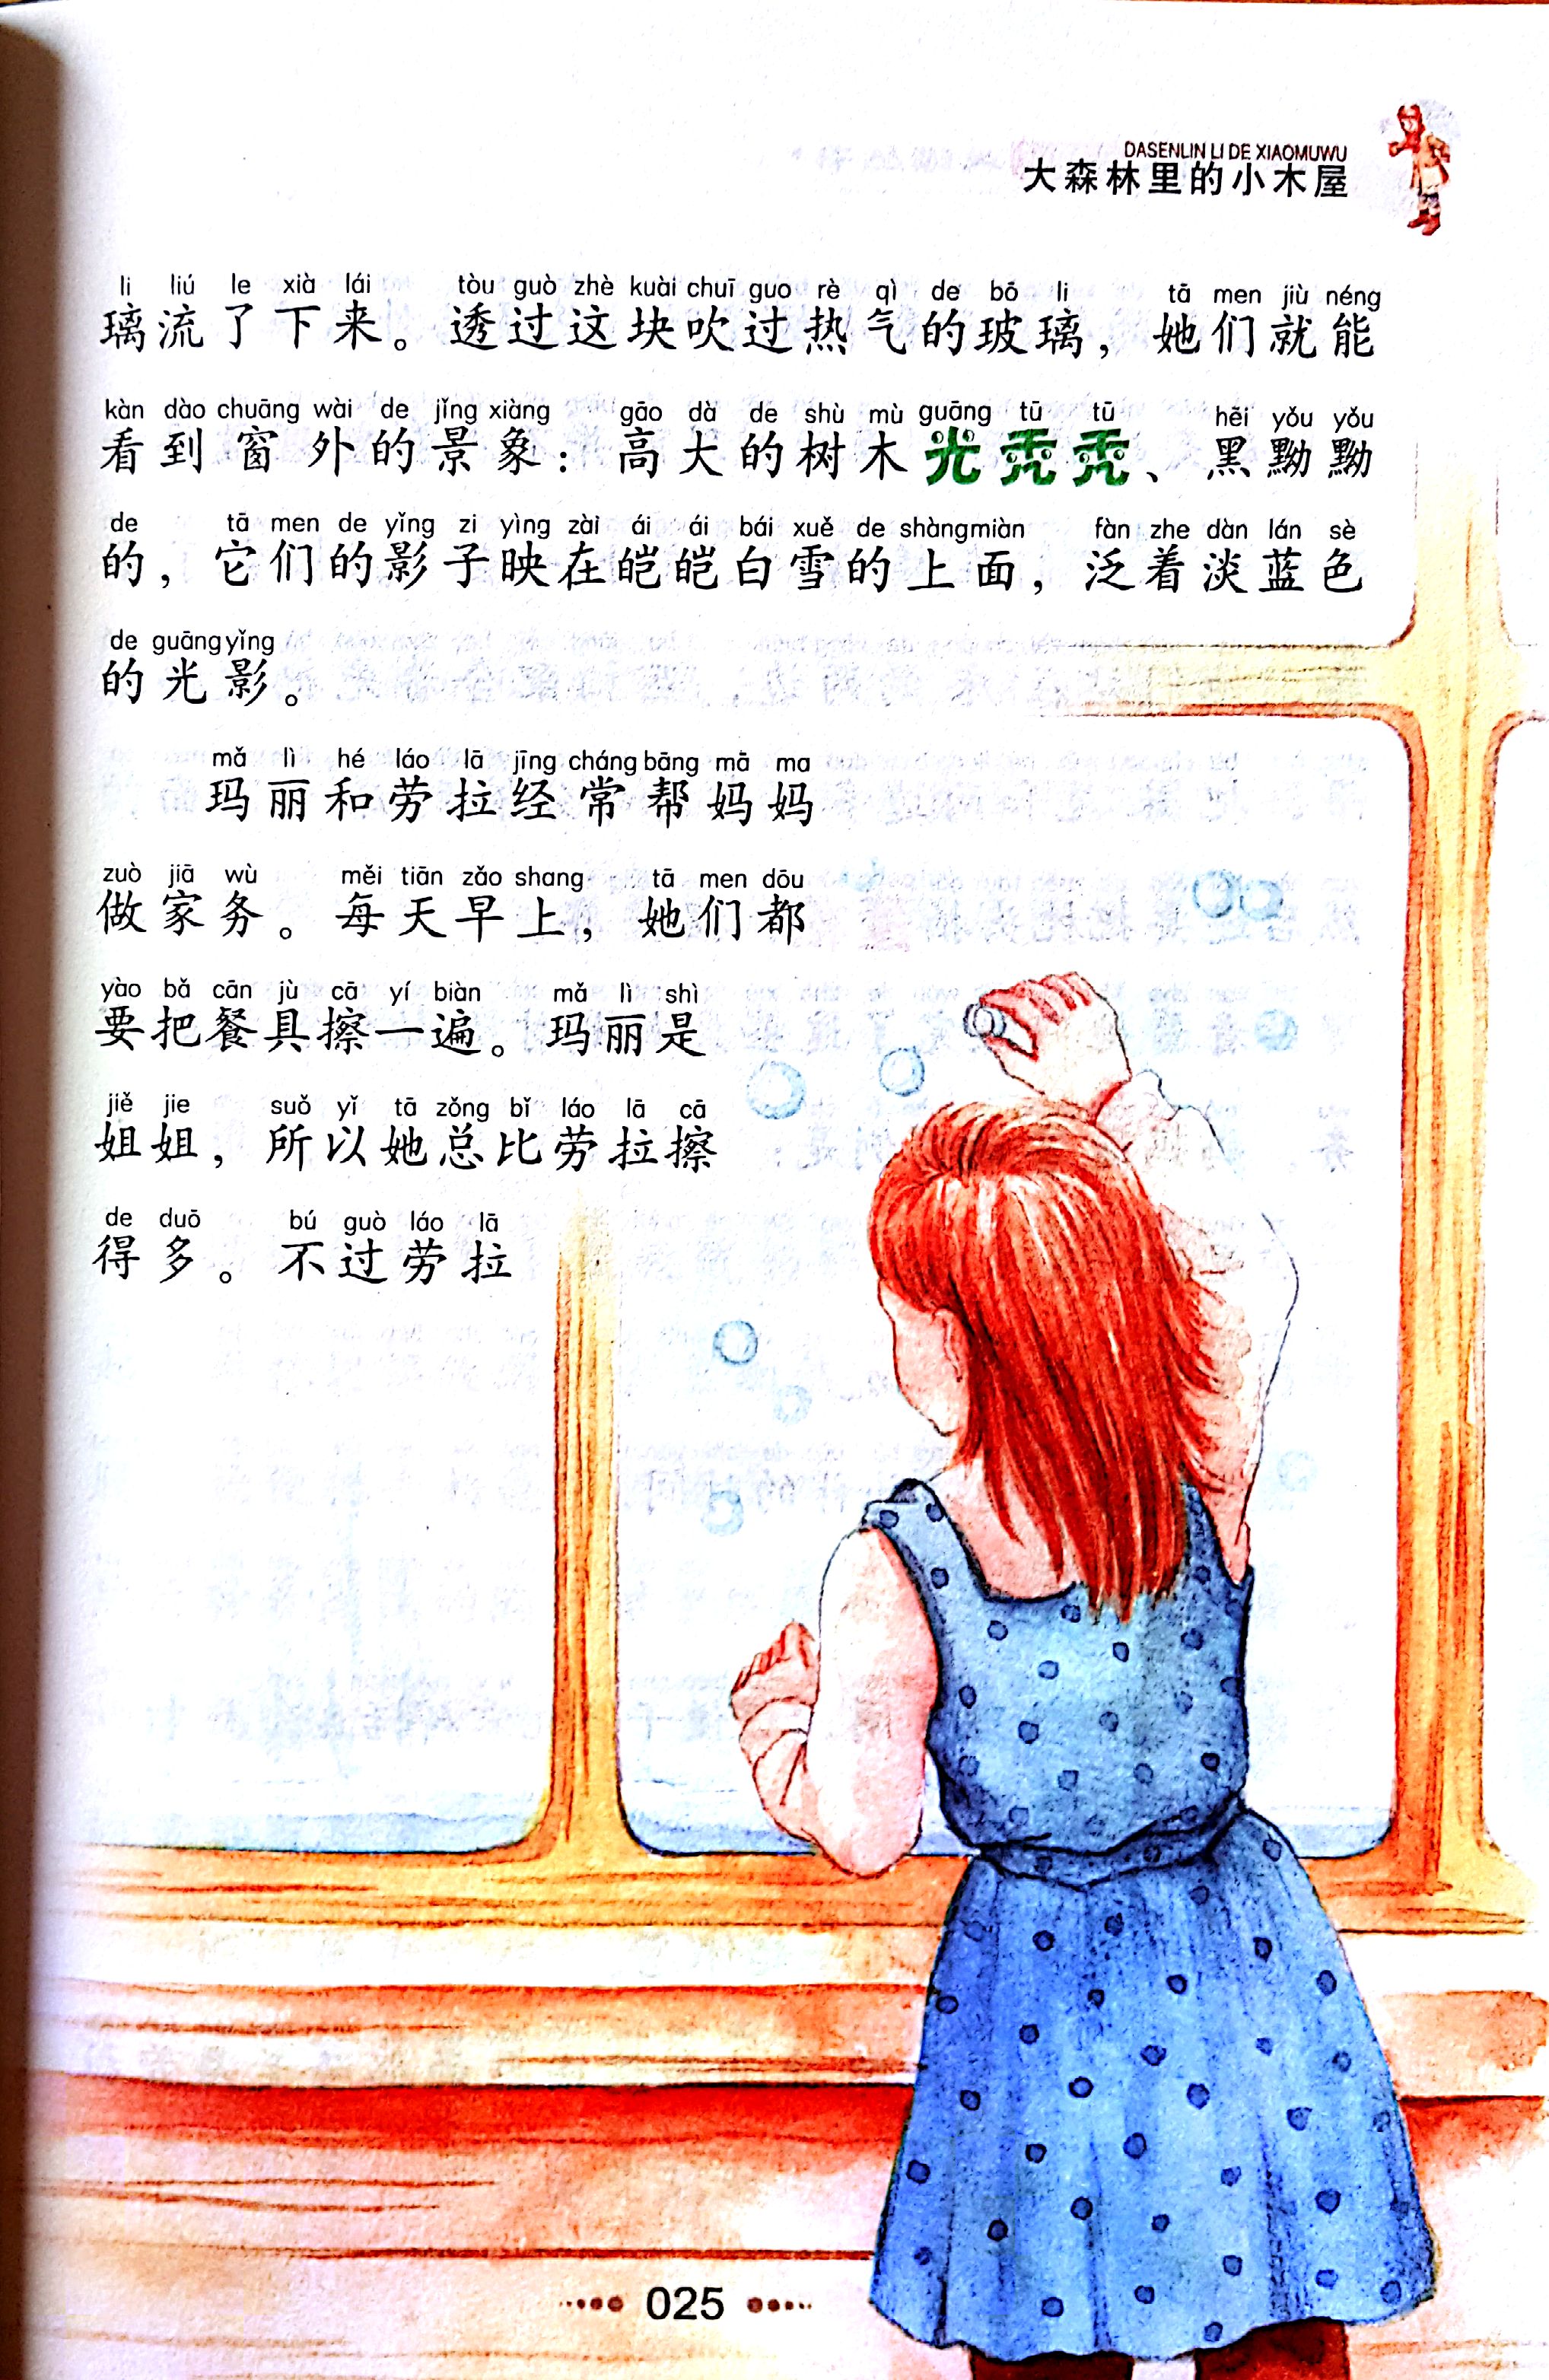 DASENLIN LI DE XIAOMUWU
大森林里的小木屋
li liú le xià lái tòu guò zhè kuài chuī guo rè qì de bō li tā men jiù néng
璃流了下来。透过这块吹过热气的玻璃，她们就能
kàn dào chuāng wài de jǐng xiàng gāo dà de shù mù guāng tū tū hēi yǒu yǒu
看到窗外的景象：高大的树木光秃秃、黑黝黝
de tā men de yǐng zi yìng zài ái ái bái xuě de shàng miàn fàn zhe dàn lán sè
的，它们的影子映在皑皑白雪的上面，泛着淡蓝色
de guāng yǐng
的光影。
mǎ lì hé láo lā jīng cháng bāng mā ma
玛丽和劳拉经常帮妈妈
zuò jiā wù měi tiān zǎo shang tā men dōu
做家务。每天早上，她们都
yào bǎ cān jù cā yí biàn mǎ lì shì
要把餐具擦一遍。玛丽是
jiě jie suǒ yǐ tā zǒng bǐ láo lā cā
姐姐，所以她总比劳拉擦
de duō bú guò láo lā
得多。不过劳拉
025